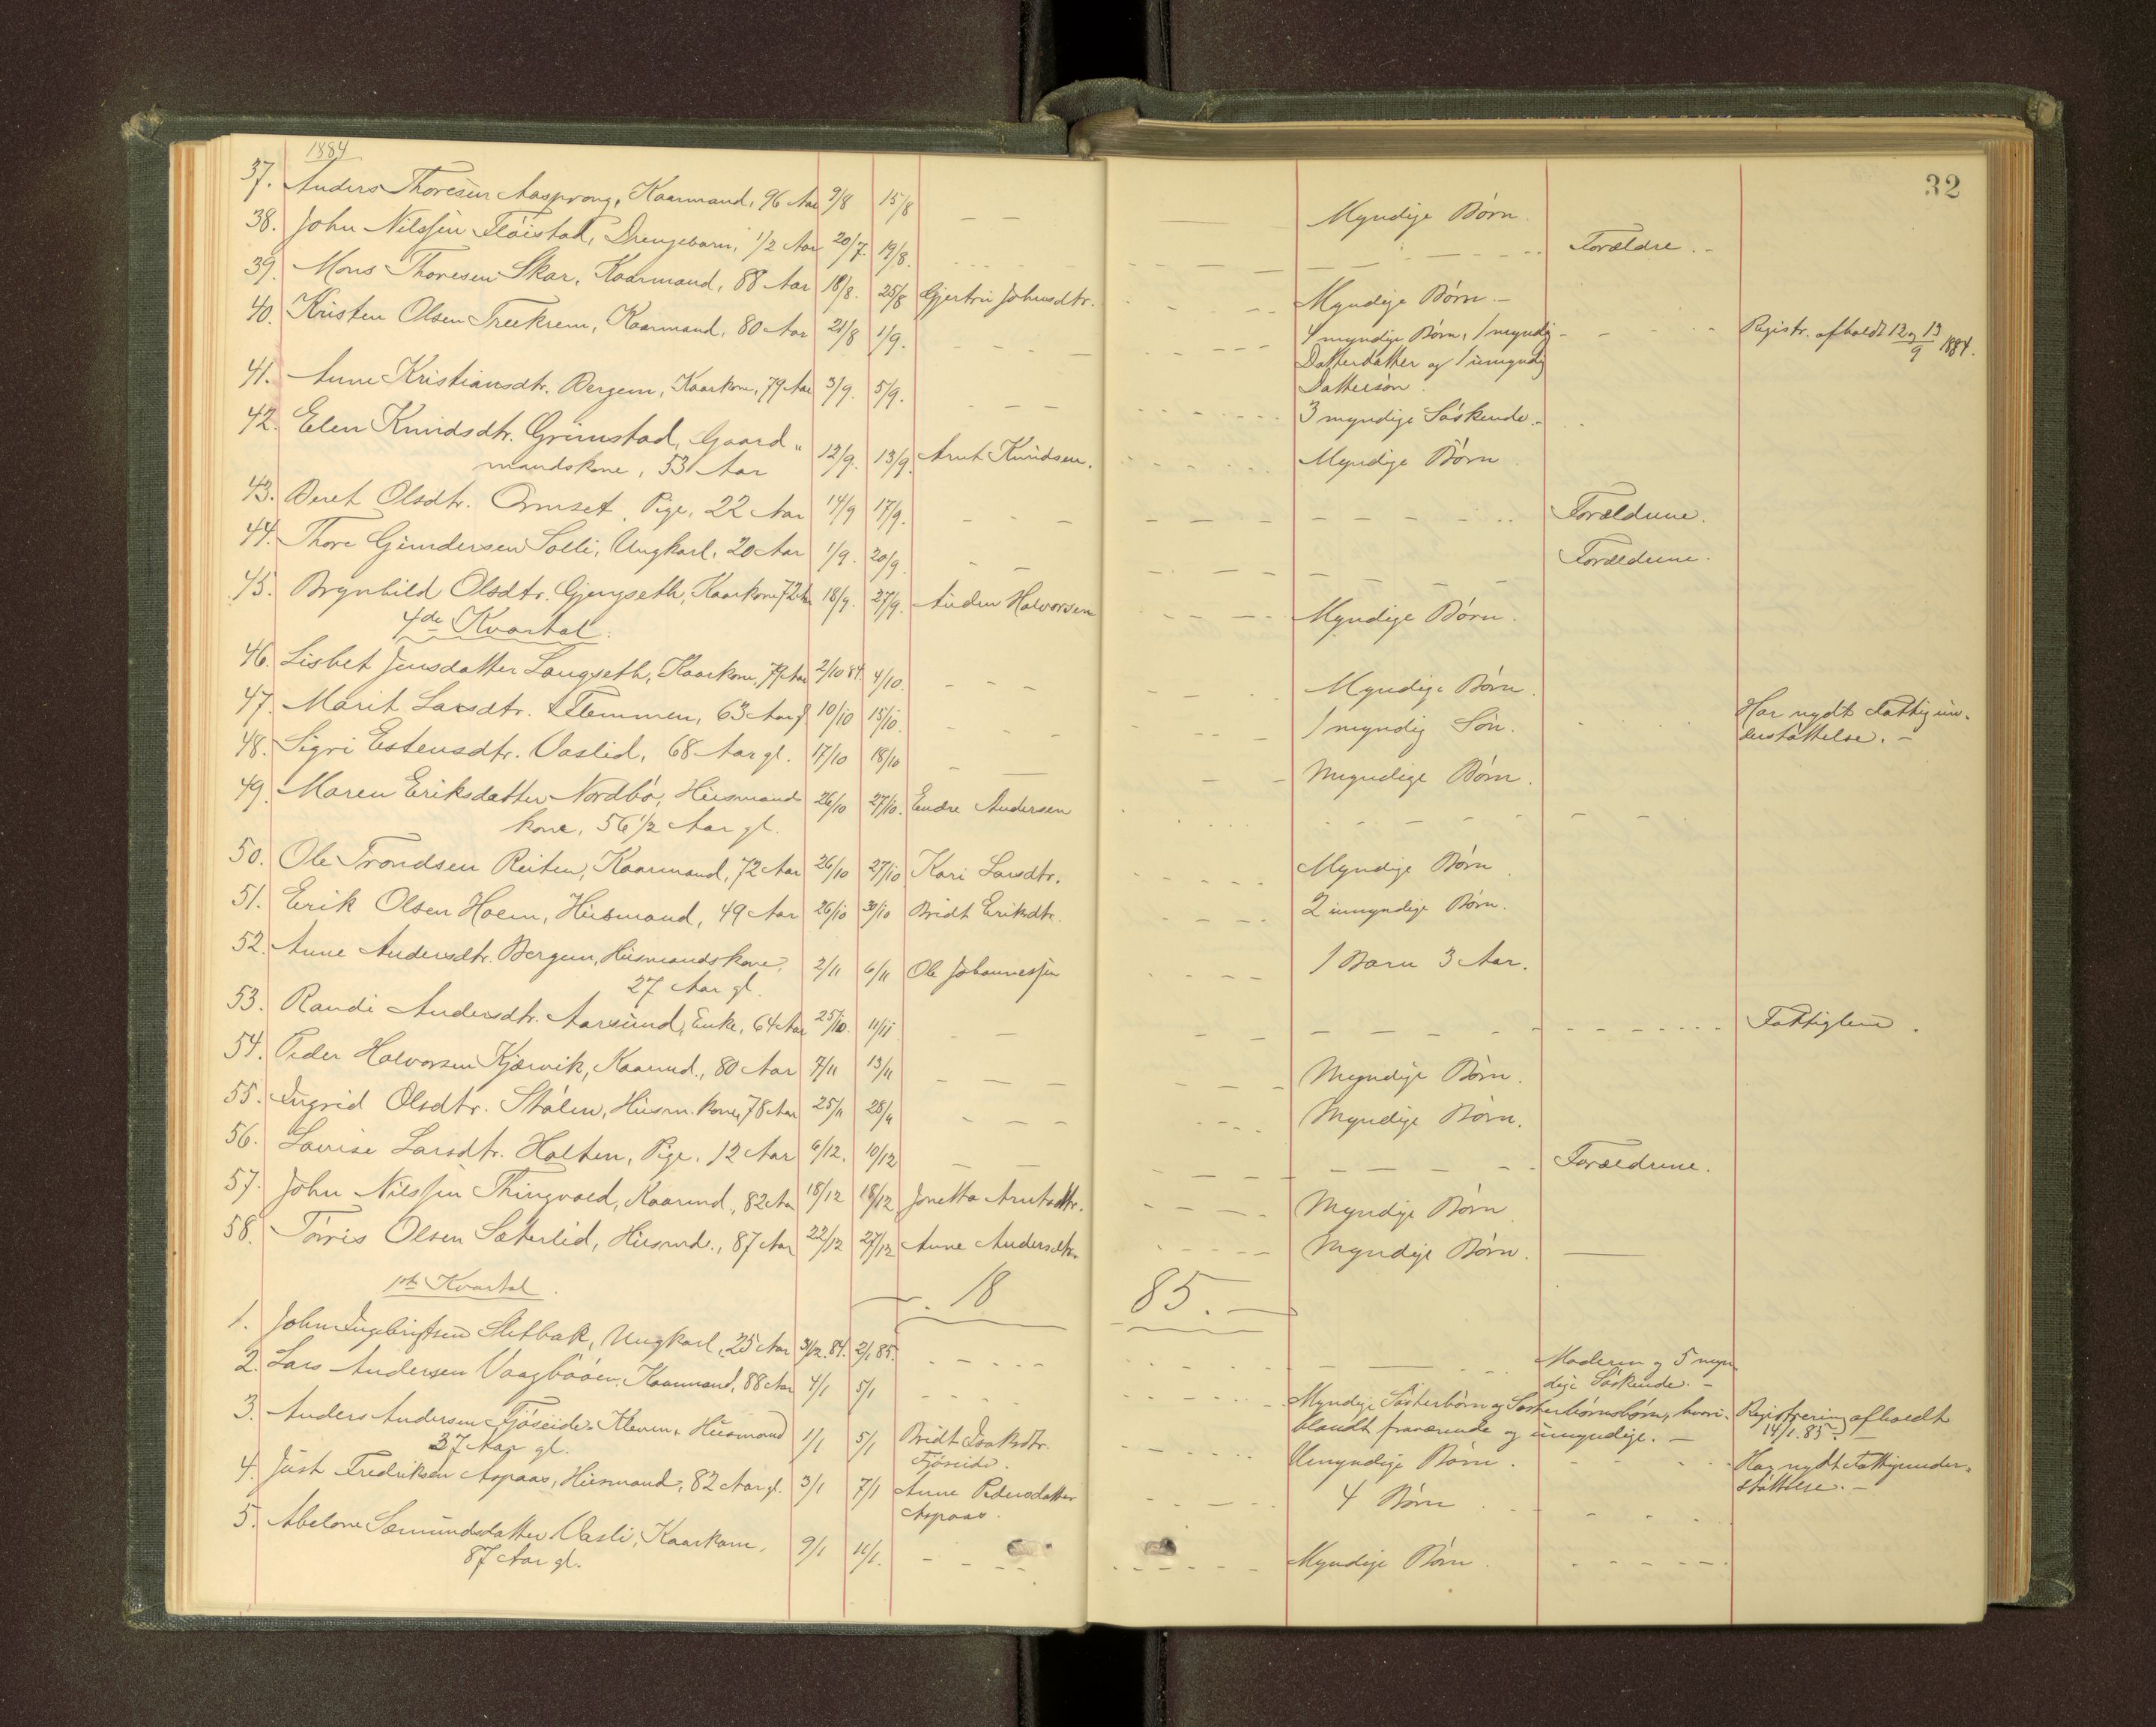 1884
32
37. Anders Thoresen Aasprong, Kaarmand, 96 Aar 9/8 15/8 Myndige Børn.
38. John Nilssen Fløistad, Drengebarn, 1/2 Aar 20/7. 19/8. Forældre.
39. Mons Thoresen Skar, Kaarmand, 88 Aar 18/8. 25/8 Gjertru Johnsdtr. Myndige Børn.
40. Kristen Olsen Treekrem, Kaarmand, 80 Aar 21/8 1/9. 4 myndige Børn, 1 myndig Registr. afholdt 12 og 13/9 1884.
Datterdatter og 1 umyndig
Dattersøn.
41. Anne Kristiansdtr. Bergem, Kaarkone, 79 Aar 3/9. 5/9. 3 myndige Søskende.
42. Elen Knudsdtr. Grimstad, Gaard-
mandskone, 53 Aar 12/9. 13/9. Arnt Knudsen. Myndige Børn
43. Beret Olsdtr. Ormset, Pige, 22 Aar 14/9 17/9. Forældrene.
44. Thore Gundersen Solli, Ungkarl, 20 Aar 1/9. 20/9. Forældrene.
45. Brynhild Olsdtr. Gjengseth, Kaarkone 72 Aar 18/9. 27/9. Auden Halvorsen Myndige Børn.
4de Kvartal.
46. Lisbet Jensdatter Langseth, Kaarkone, 79 Aar 2/10 84. 4/10. Myndige Børn.
47. Marit Larsdtr. Flemmen, 63 Aar g 10/10 15/10. 1 myndig Søn. Har nydt Fattigun-
derstøttelse.
48. Sigri Estensdtr. Vaslid, 68 Aar gl. 17/10 18/10 Myndige Børn.
49. Maren Eriksdatter Nordbø, Husmands 26/10 27/10. Endre Andersen
kone, 56 1/2 Aar gl.
50. Ole Trondsen Reiten, Kaarmand, 72 Aar 26/10 27/10 Kari Larsdtr. Myndige Børn
51. Erik Olsen Hoem, Husmand, 49 Aar 26/10 30/10 Bridt Eriksdtr. 2 umyndige Børn.
52. Anne Andersdtr. Bergem, Husmandskone, 2/11 6/11 Ole Johannessen 1 Barn 3 Aar.
27 Aar gl.
53. Randi Andersdtr. Aarsund, Enke, 64 Aar 25/10. 11/11 Fattiglem.
54. Peder Halvorsen Kjørvik, Kaarmd., 80 Aar 7/11 13/11 Myndige Børn.
55. Ingrid Olsdtr. Stølen, Husm. kone, 78 Aar 25/11 28/11 Myndige Børn.
56. Lovise Larsdtr. Holten, Pige, 12 Aar 6/12. 10/12 Forældrene.
57. John Nilssen Thingvold, Kaarmd., 82 Aar 18/12 18/12 Jonetta Arntsdtr. Myndige Børn
58. Tørris Olsen Sæterlid, Husmd., 87 Aar 22/12 27/12 Anne Andersdtr. Myndige Børn.
1ste Kvartal. 18 85.
1. John Ingebrigtsen Slitbak, Ungkarl, 25 Aar 31/12. 84. 2/1 85. Moderen og 5 myn
dige Søskende.
2. Lars Andersen Vaagbøøen, Kaarmand, 88 Aar 4/1 5/1 Myndige Søsterbørn og Søsterbørnsbørn, hvori- Registrering afholdt
blandt fraværende og umyndige. 14/1. 85.
3. Anders Andersen Fjøseide Kleven, Husmand 1/1 5/1 Bridt Isaksdtr. Umyndige Børn. Har nydt Fattigunder-
37 Aar gl. Fjøseide. støttelse.
4. Just Fredriksen Aspaas, Husmand, 82 Aar gl. 3/1 7/1 Anne Pedersdatter 4 Børn
Aspaas.
5. Abelone Sæmundsdatter Vasli, Kaarkone, 9/1 11/1. Myndige Børn.
87 Aar gl.